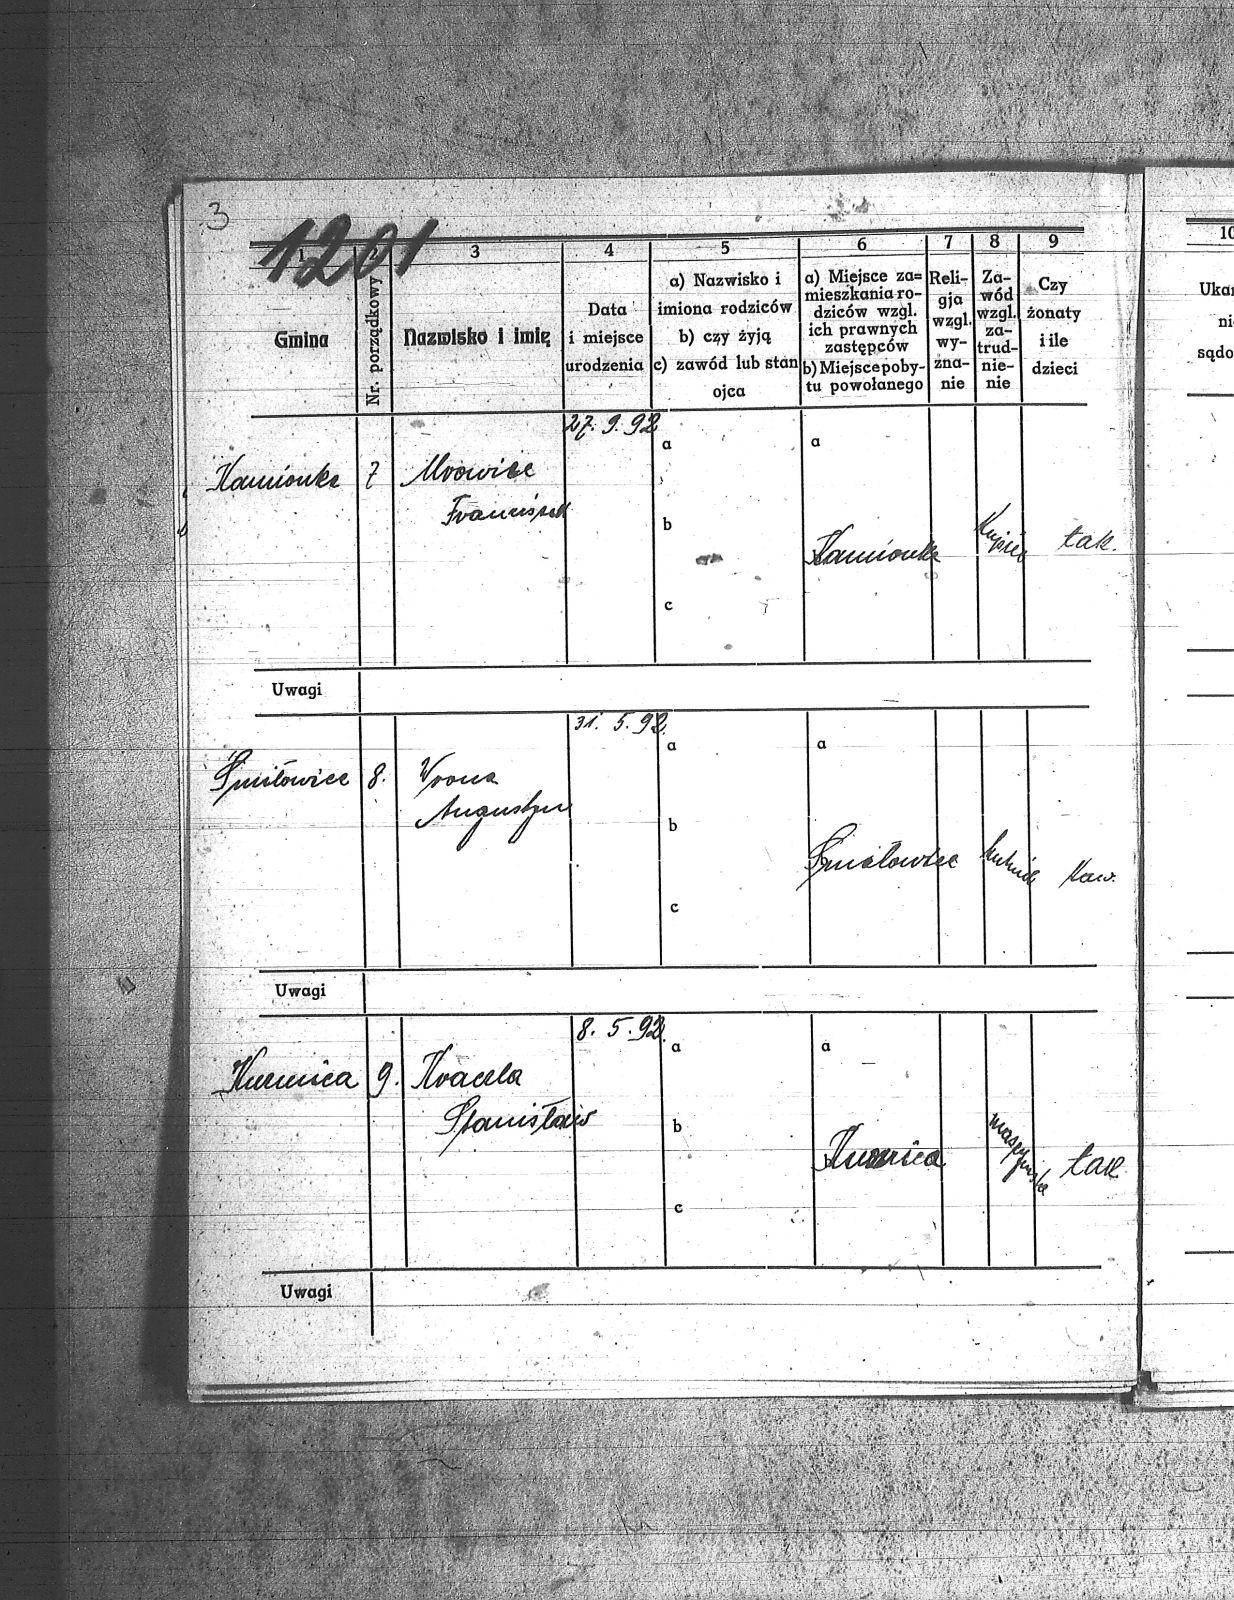 3
1201
1
2
3
4
5
6
7
8
9
10
Gmina
Nr. porządkowy
Nazwisko i imię
Data
i miejsce
urodzenia
a) Nazwisko i
imiona rodziców
b) czy żyją
c) zawód lub stan
ojca
a) Miejsce za=
mieszkania ro-
dziców wzgl.
ich prawnych
zastępców
b) Miejsce poby-
tu powołanego
Reli-
gja
wzgl.
wy-
zna-
nie
Za-
wód
wzgl.
za-
trud-
nie-
nie
Czy
żonaty
i ile
dzieci
Kamionka
7
Mrowiec
Franciszek
27. 9. 92
a
b
c
a
Kamionka
Kupiec
tak.
Uwagi
Śmiłowice
8.
Wrona
Augustyn
31. 5. 92.
a
b
c
a
Śmiłowice
Kaw.
Uwagi
9.
Stanisław
8. 5. 92.
a
b
c
a
tak
Uwagi